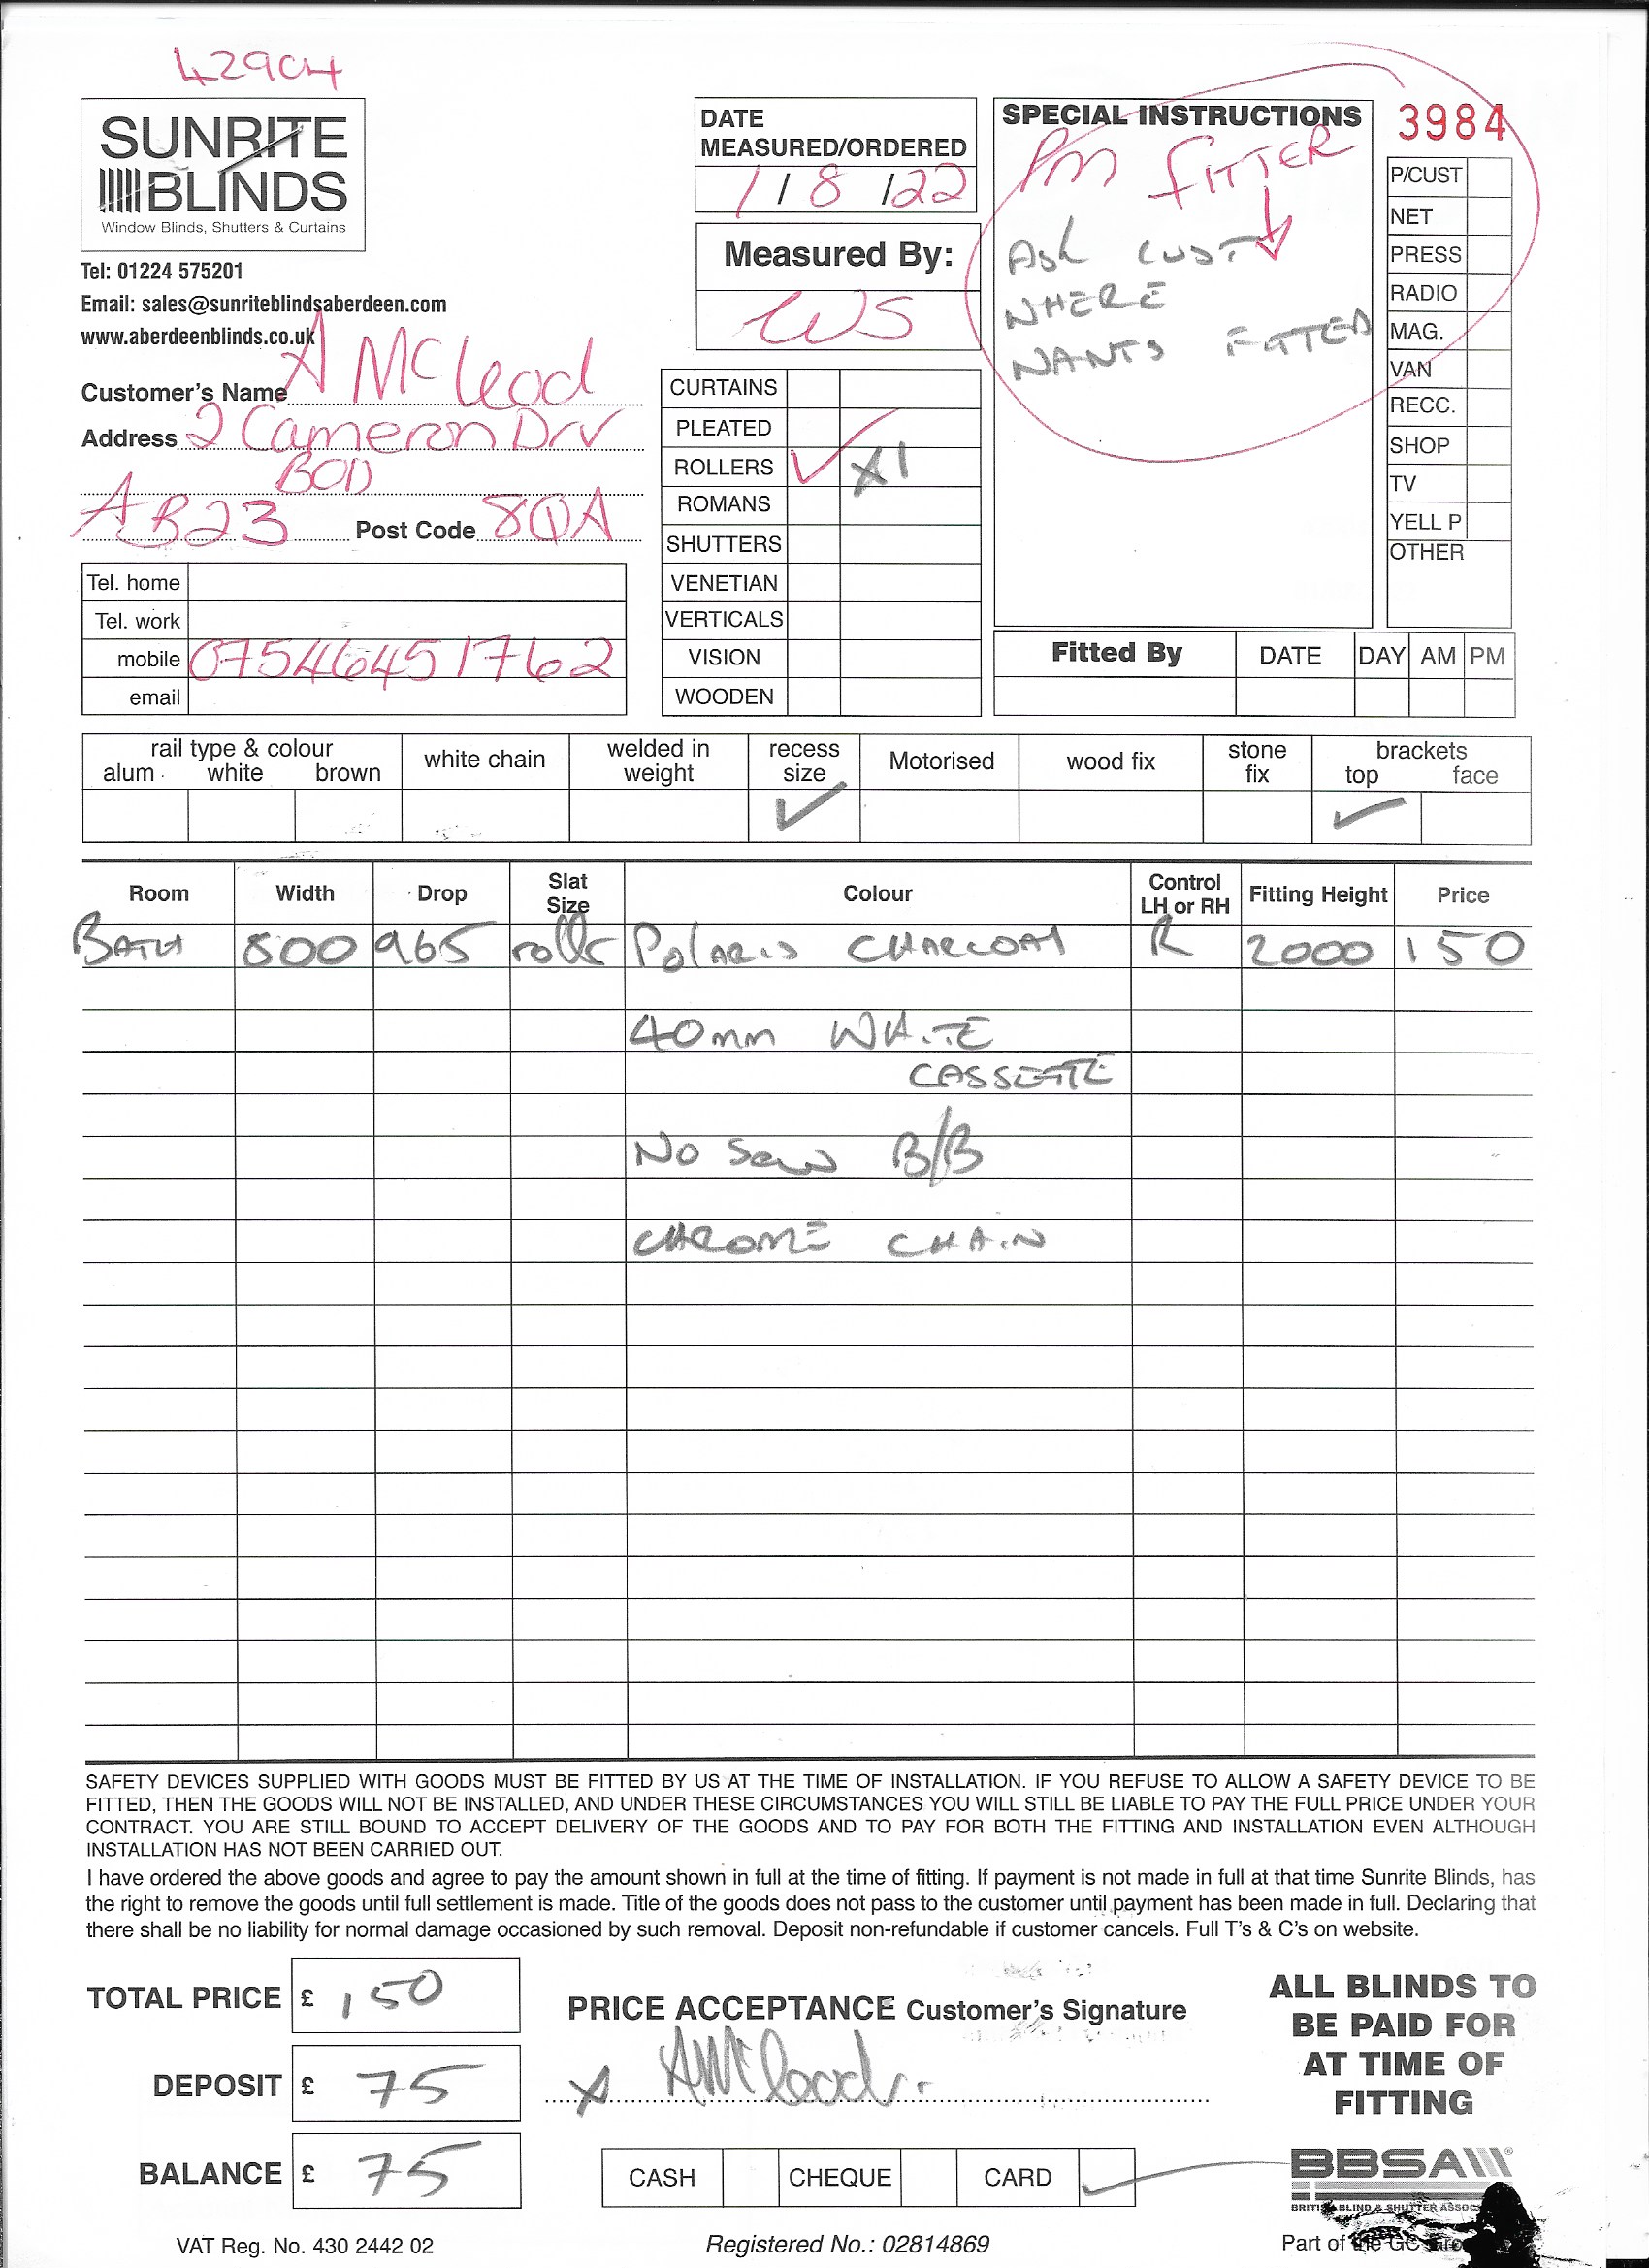 42904
SUNRITE
BLINDS
Window Blinds, Shutters & Curtains
Tel: 01224 575201
Email: sales@sunriteblindsaberdeen.com
www.aberdeenblinds.co.uk
Customer's Name A McLeod
Address 2 Cameron Drv
BOD
AB23 Post Code 8QA
Tel. home
Tel. work
mobile 07546451762
email
DATE
MEASURED/ORDERED
1/8/22
Measured By:
WS
CURTAINS
PLEATED
ROLLERS ✓ X1
ROMANS
SHUTTERS
VENETIAN
VERTICALS
VISION
WOODEN
SPECIAL INSTRUCTIONS
PM FITTER
ASK CUST
WHERE
WANTS FITTED
3984
P/CUST
NET
PRESS
RADIO
MAG.
VAN
RECC.
SHOP
TV
YELL P
OTHER
Fitted By DATE DAY AM PM
rail type & colour
alum white brown
white chain
welded in
weight
recess
size ✓
Motorised
wood fix
stone
fix
brackets
top ✓ face
Room Width Drop Slat Size Colour Control LH or RH Fitting Height Price
BATH 800 965 roller POLARIS CHARCOAL R 2000 150
40mm WHITE
CASSETTE
No Sew B/B
CHROME CHAIN
SAFETY DEVICES SUPPLIED WITH GOODS MUST BE FITTED BY US AT THE TIME OF INSTALLATION. IF YOU REFUSE TO ALLOW A SAFETY DEVICE TO BE
FITTED, THEN THE GOODS WILL NOT BE INSTALLED, AND UNDER THESE CIRCUMSTANCES YOU WILL STILL BE LIABLE TO PAY THE FULL PRICE UNDER YOUR
CONTRACT. YOU ARE STILL BOUND TO ACCEPT DELIVERY OF THE GOODS AND TO PAY FOR BOTH THE FITTING AND INSTALLATION EVEN ALTHOUGH
INSTALLATION HAS NOT BEEN CARRIED OUT.
I have ordered the above goods and agree to pay the amount shown in full at the time of fitting. If payment is not made in full at that time Sunrite Blinds, has
the right to remove the goods until full settlement is made. Title of the goods does not pass to the customer until payment has been made in full. Declaring that
there shall be no liability for normal damage occasioned by such removal. Deposit non-refundable if customer cancels. Full T's & C's on website.
TOTAL PRICE £ 150
DEPOSIT £ 75
BALANCE £ 75
PRICE ACCEPTANCE Customer's Signature
X AMcleod
CASH CHEQUE CARD ✓
ALL BLINDS TO
BE PAID FOR
AT TIME OF
FITTING
BBSA
BLIND & SHUTTER
VAT Reg. No. 430 2442 02
Registered No.: 02814869
Part of the GC